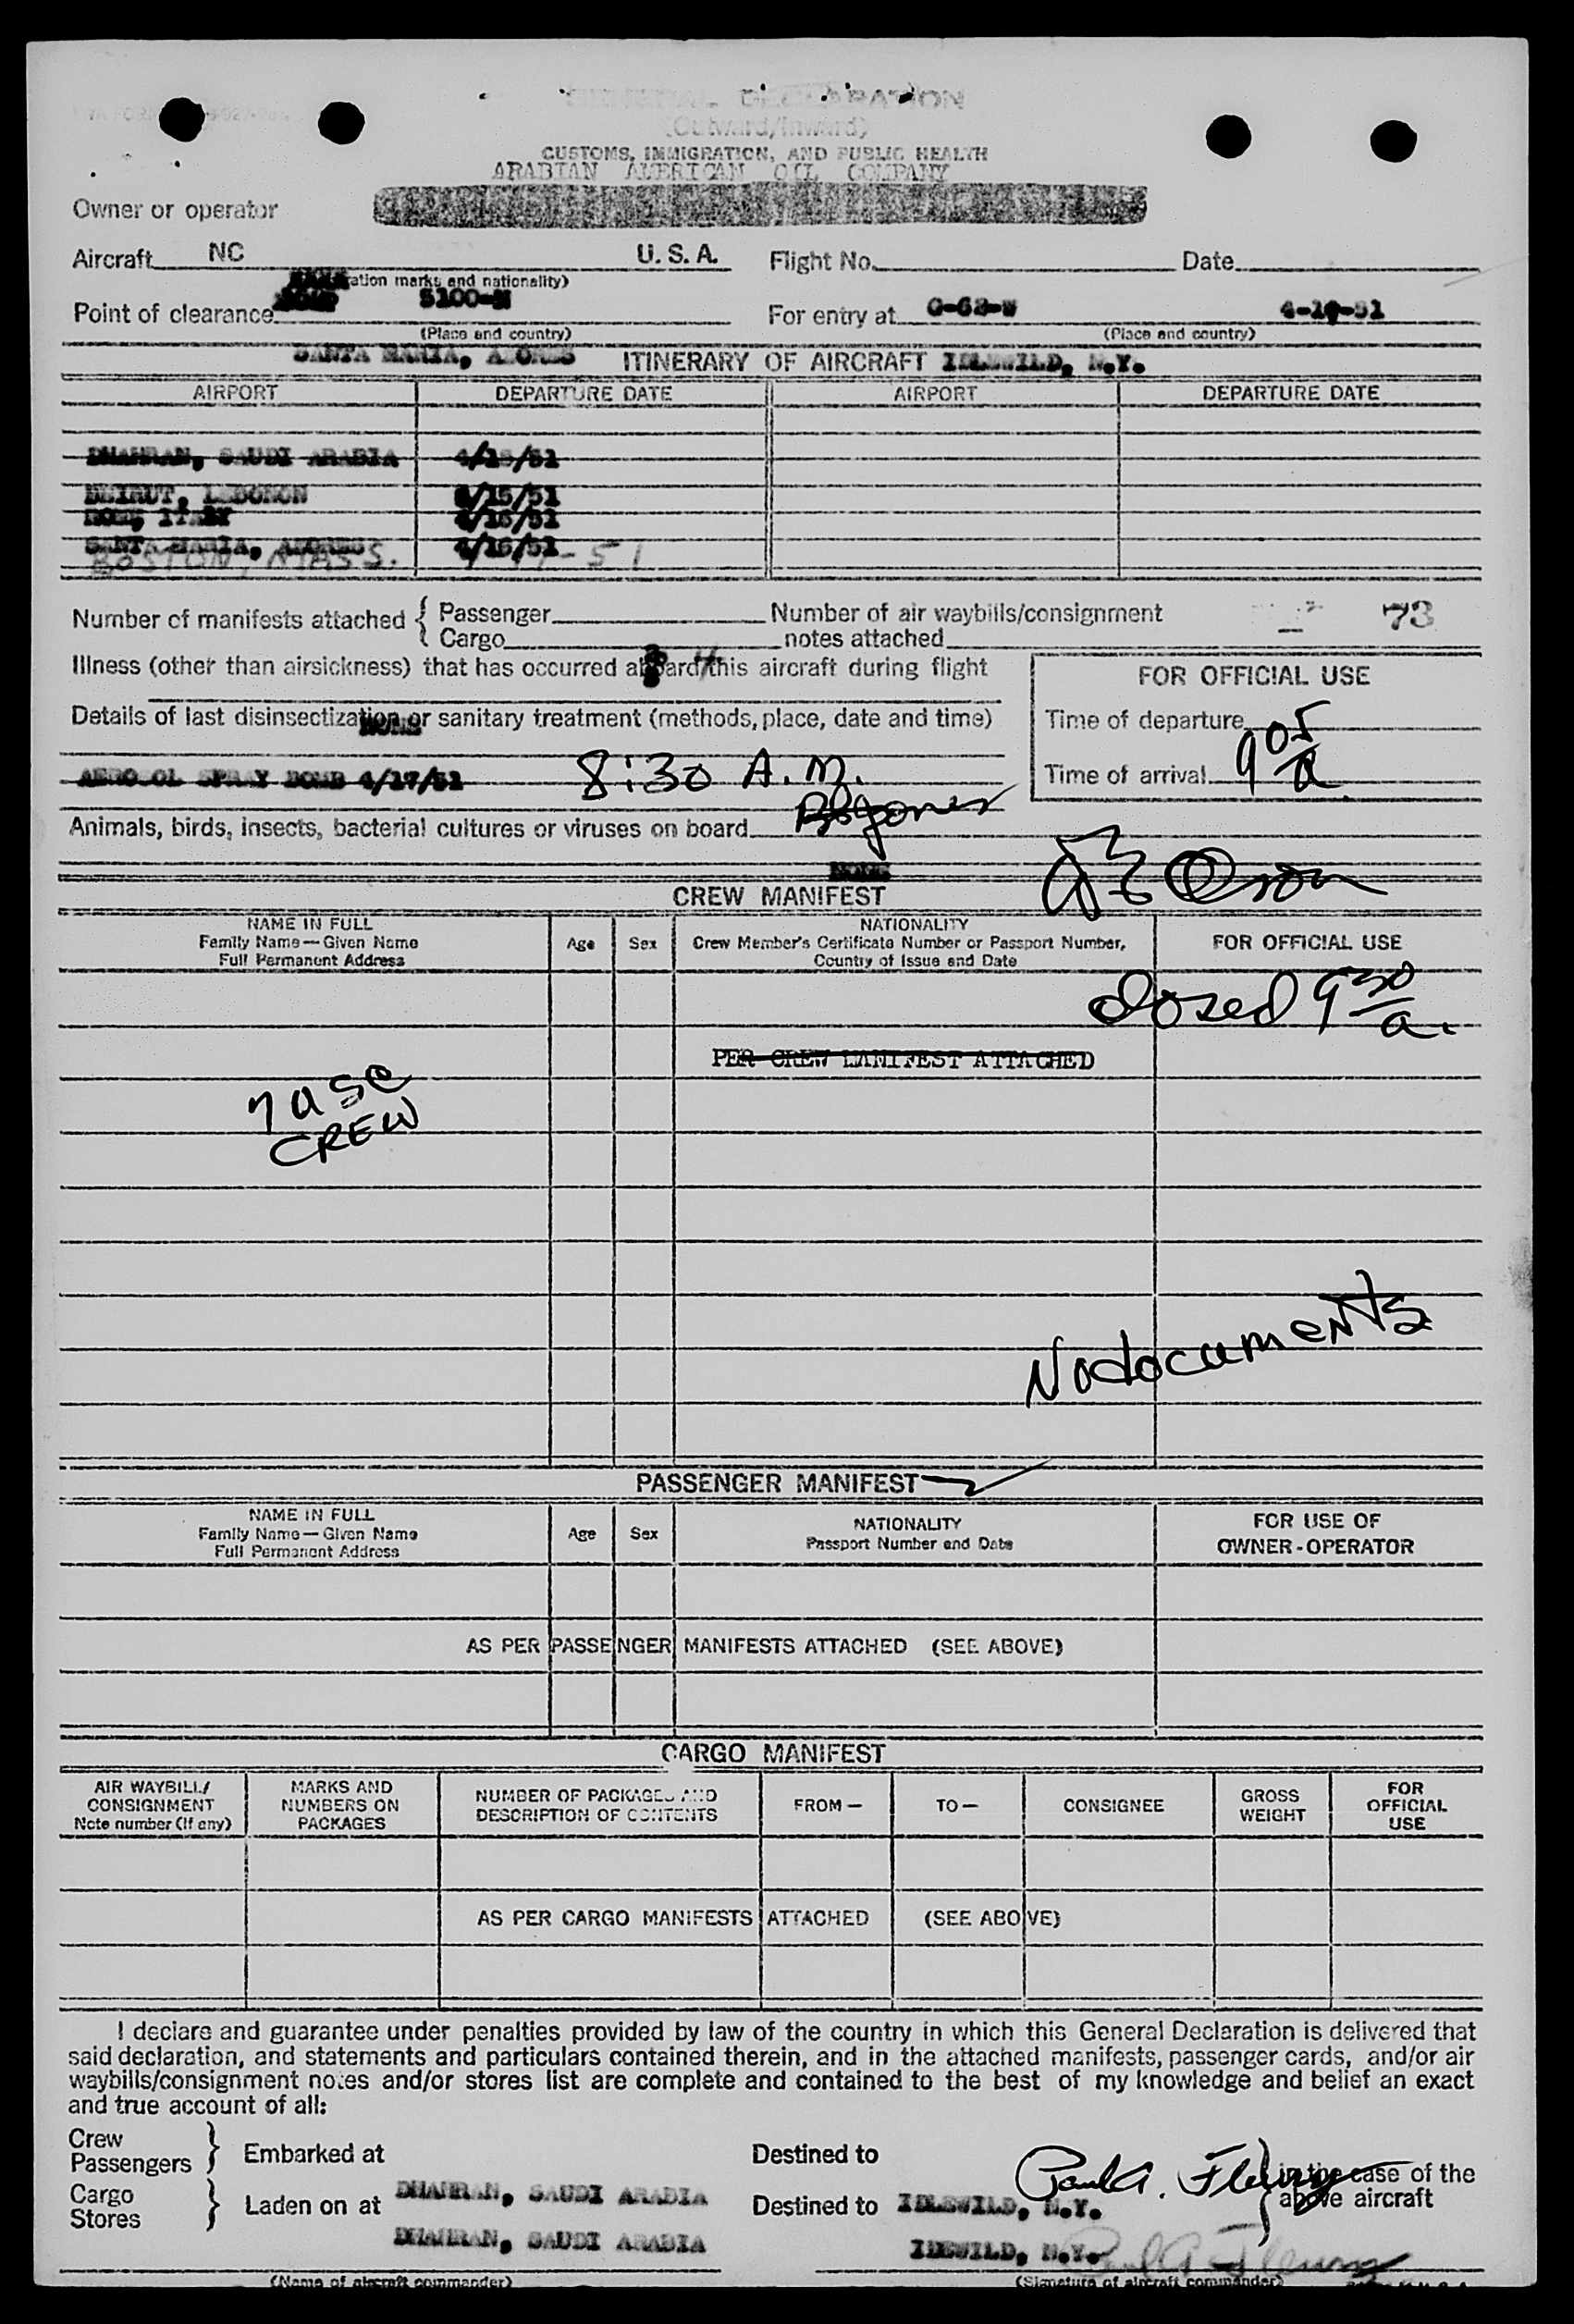 GENERAL DECLARATION
(Outward/Inward)
CUSTOMS, IMMIGRATION, AND PUBLIC HEALTH
ARABIAN AMERICAN OIL COMPANY
Owner or operator
Aircraft NC U. S. A. Flight No. Date
ation marks and nationality)
Point of clearance 5100-N For entry at 4-19-51
(Place and country) (Place and country)
SANTA MARIA, AZORES ITINERARY OF AIRCRAFT IDLEWILD, N.Y.
AIRPORT DEPARTURE DATE AIRPORT DEPARTURE DATE
DHAHRAN, SAUDI ARABIA 4/15/51
BEIRUT, LEBONON 4/15/51
ROME, ITALY 4/16/51
SANTA MARIA, AZORES 4/16/51
BOSTON, MASS. -51
Number of manifests attached { Passenger Number of air waybills/consignment 73
Cargo notes attached
Illness (other than airsickness) that has occurred aboard this aircraft during flight
FOR OFFICIAL USE
Details of last disinsectization or sanitary treatment (methods, place, date and time)
NONE
Time of departure
AEROSOL SPRAY BOMB 4/17/51 8:30 A.M.
Time of arrival 9 05 a
Animals, birds, insects, bacterial cultures or viruses on board
NONE
Olson
CREW MANIFEST
NAME IN FULL
Family Name—Given Name
Full Permanent Address
Age Sex
NATIONALITY
Crew Member's Certificate Number or Passport Number,
Country of Issue and Date
FOR OFFICIAL USE
closed 9 30 a.
PER CREW MANIFEST ATTACHED
7 USC
CREW
No documents
PASSENGER MANIFEST
NAME IN FULL
Family Name—Given Name
Full Permanent Address
Age Sex
NATIONALITY
Passport Number and Date
FOR USE OF
OWNER-OPERATOR
AS PER PASSENGER MANIFESTS ATTACHED (SEE ABOVE)
CARGO MANIFEST
AIR WAYBILL/
CONSIGNMENT
Note number (if any)
MARKS AND
NUMBERS ON
PACKAGES
NUMBER OF PACKAGES AND
DESCRIPTION OF CONTENTS
FROM—
TO—
CONSIGNEE
GROSS
WEIGHT
FOR
OFFICIAL
USE
AS PER CARGO MANIFESTS ATTACHED (SEE ABOVE)
I declare and guarantee under penalties provided by law of the country in which this General Declaration is delivered that
said declaration, and statements and particulars contained therein, and in the attached manifests, passenger cards, and/or air
waybills/consignment notes and/or stores list are complete and contained to the best of my knowledge and belief an exact
and true account of all:
Crew
Passengers } Embarked at Destined to Paul A. Fleury in the case of the
Cargo
Stores } Laden on at DHAHRAN, SAUDI ARABIA Destined to IDLEWILD, N.Y. above aircraft
DHAHRAN, SAUDI ARABIA IDEWILD, N.Y.
(Name of aircraft commander) (Signature of aircraft commander)